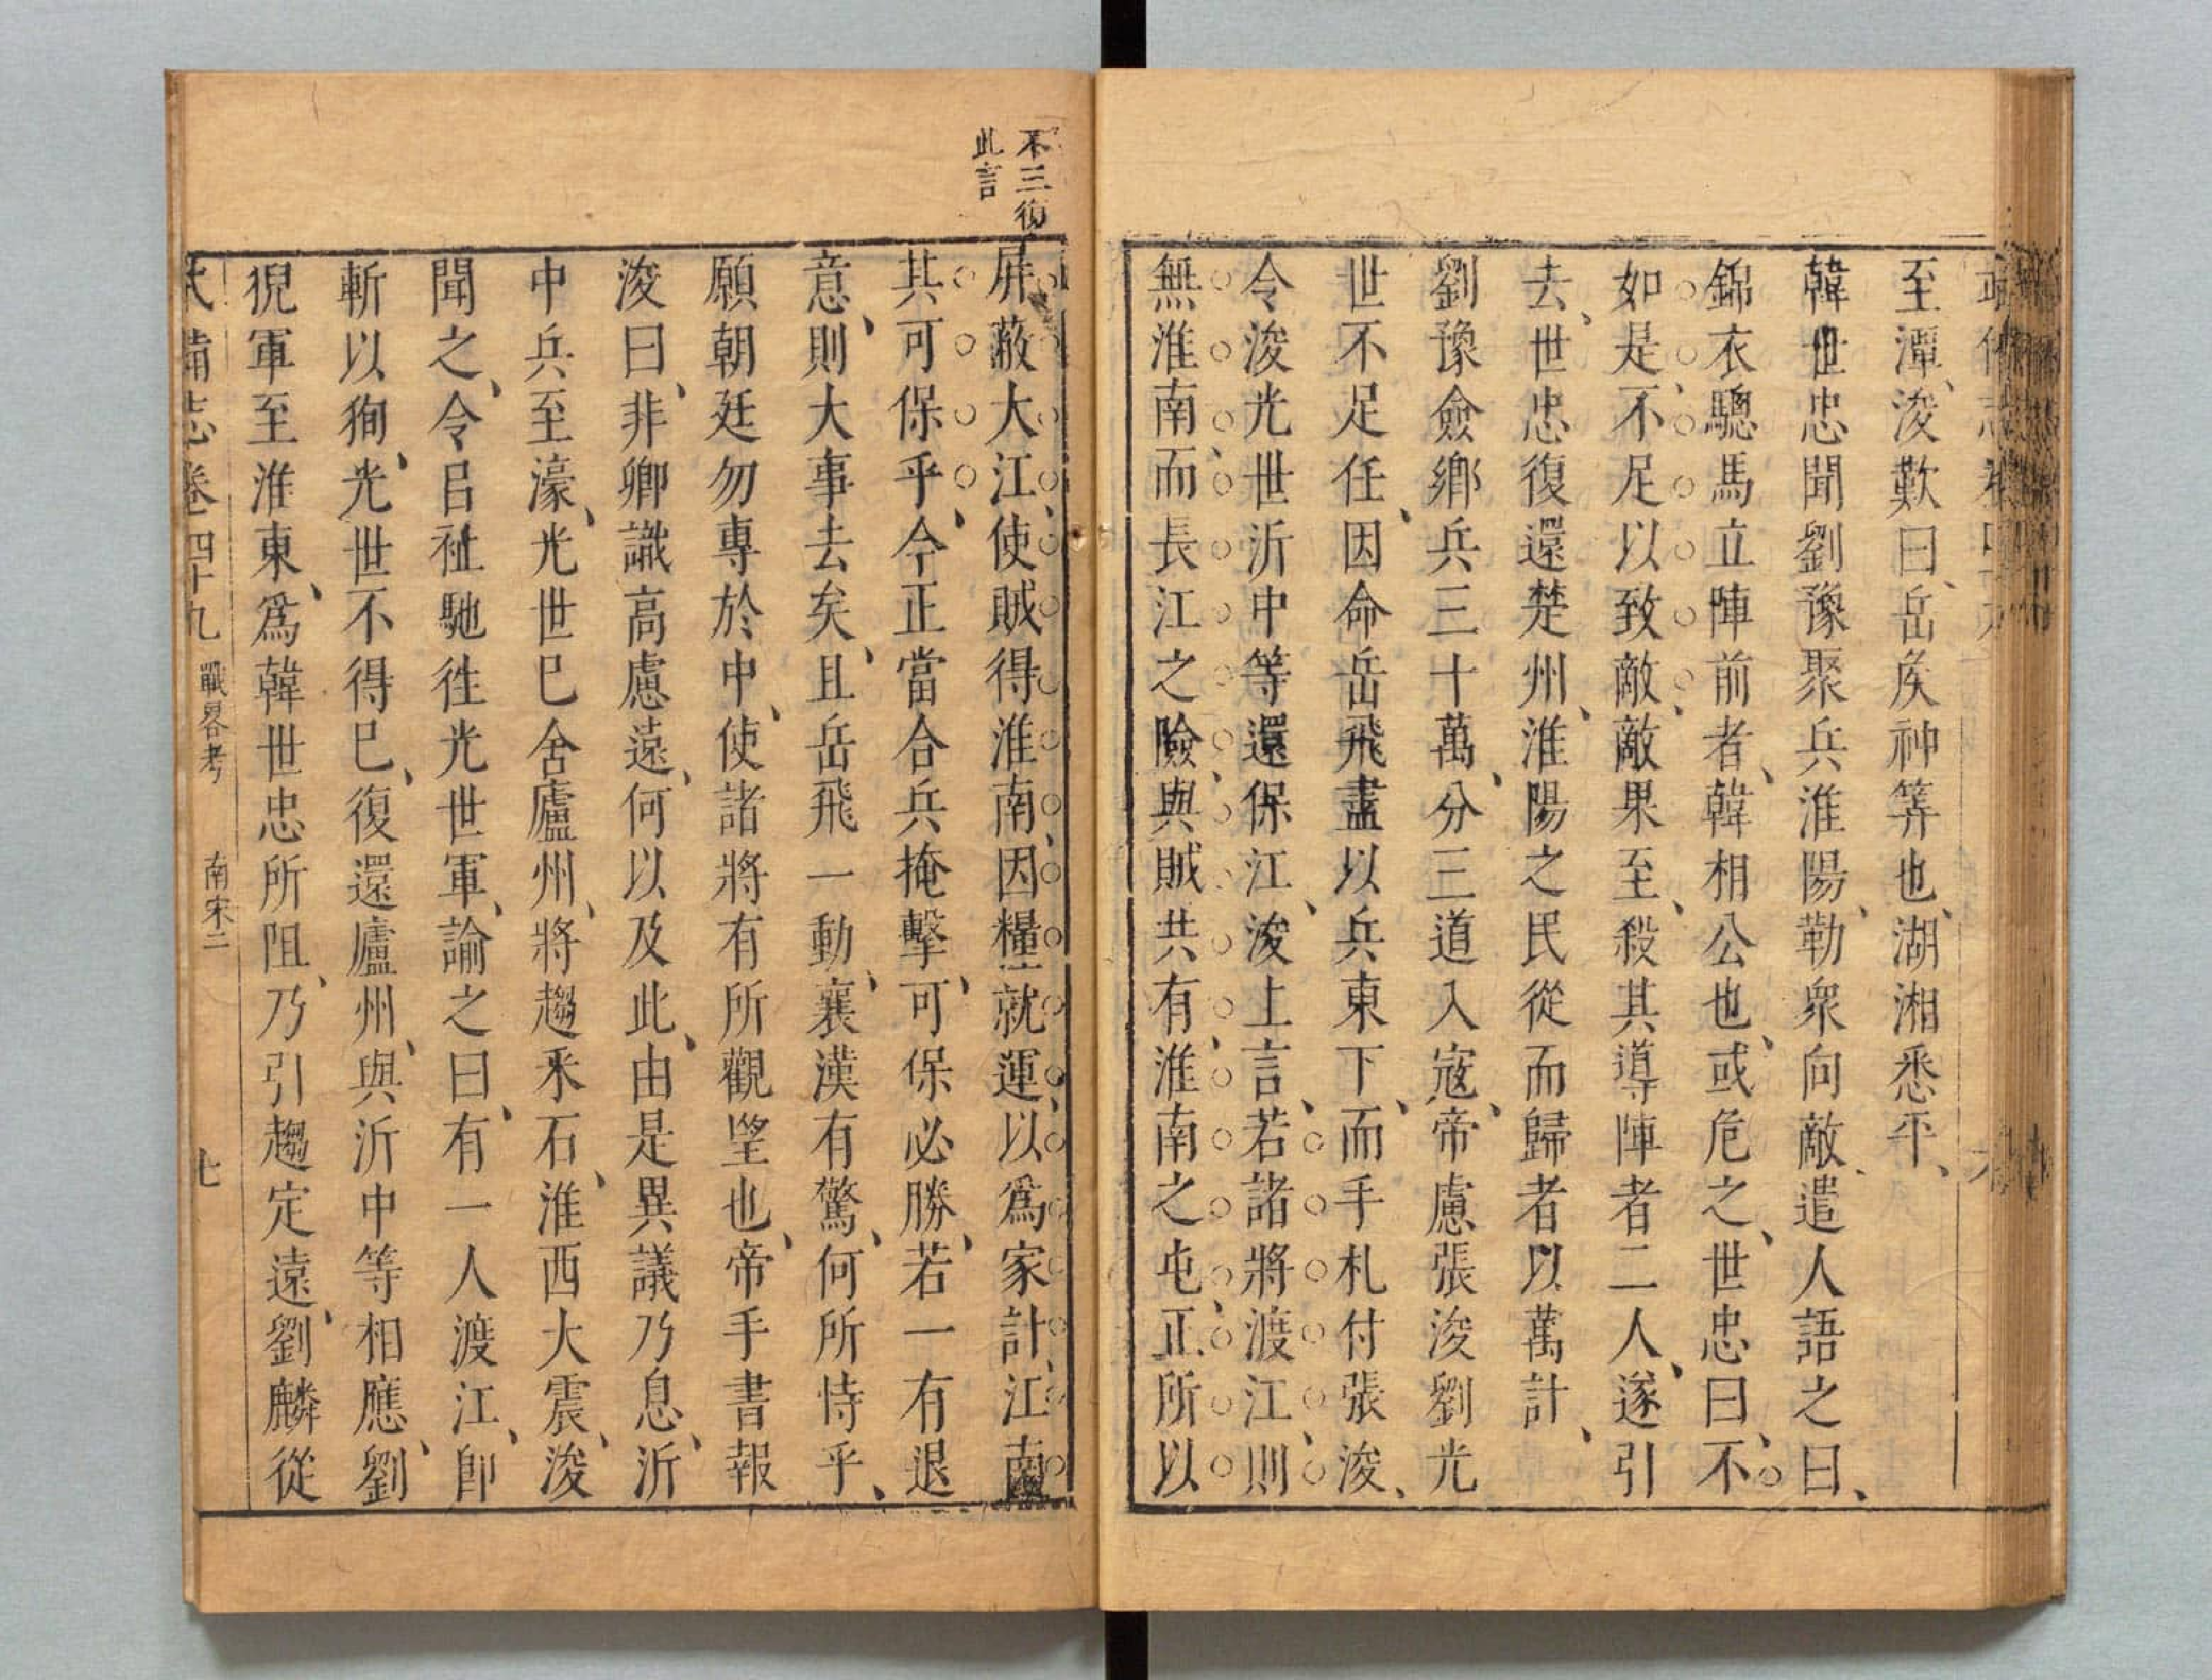 至潭、浚歎曰、岳侯神筭也、湖湘悉平、
韓世忠聞劉豫聚兵淮陽、勒衆向敵、遣人語之曰、
錦衣驄馬立陣前者、韓相公也、或危之、世忠曰、不
如是、不足以致敵、敵果至、殺其導陣者二人、遂引
去、世忠復還楚州、淮陽之民從而歸者以萬計、
劉豫僉鄉兵三十萬、分三道入寇、帝慮張浚劉光
世不足任、因命岳飛盡以兵東下、而手札付張浚、
令浚光世沂中等還保江、浚上言、若諸將渡江、則
無淮南、而長江之險、與賊共有、淮南之屯、正所以
不三復
此言
屏蔽大江、使賊得淮南、因糧就運、以爲家計、江南
其可保乎、今正當合兵掩擊、可保必勝、若一有退
意、則大事去矣、且岳飛一動、襄漢有驚、何所恃乎、
願朝廷勿專於中、使諸將有所觀望也、帝手書報
浚曰、非卿識高慮遠、何以及此、由是異議乃息、沂
中兵至濠、光世已舍廬州、將趨釆石、淮西大震、浚
聞之、令呂祉馳徃光世軍、諭之曰、有一人渡江、即
斬以狥、光世不得已、復還廬州、與沂中等相應、劉
猊軍至淮東、爲韓世忠所阻、乃引趨定遠、劉麟從
備志卷四十九 戰畧考 南宋二 七